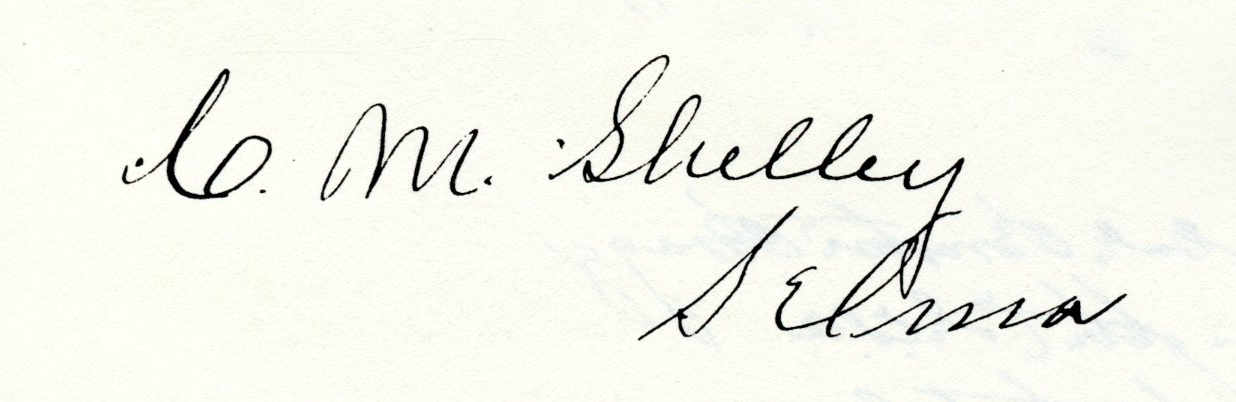 C. M. Shelley
Selma